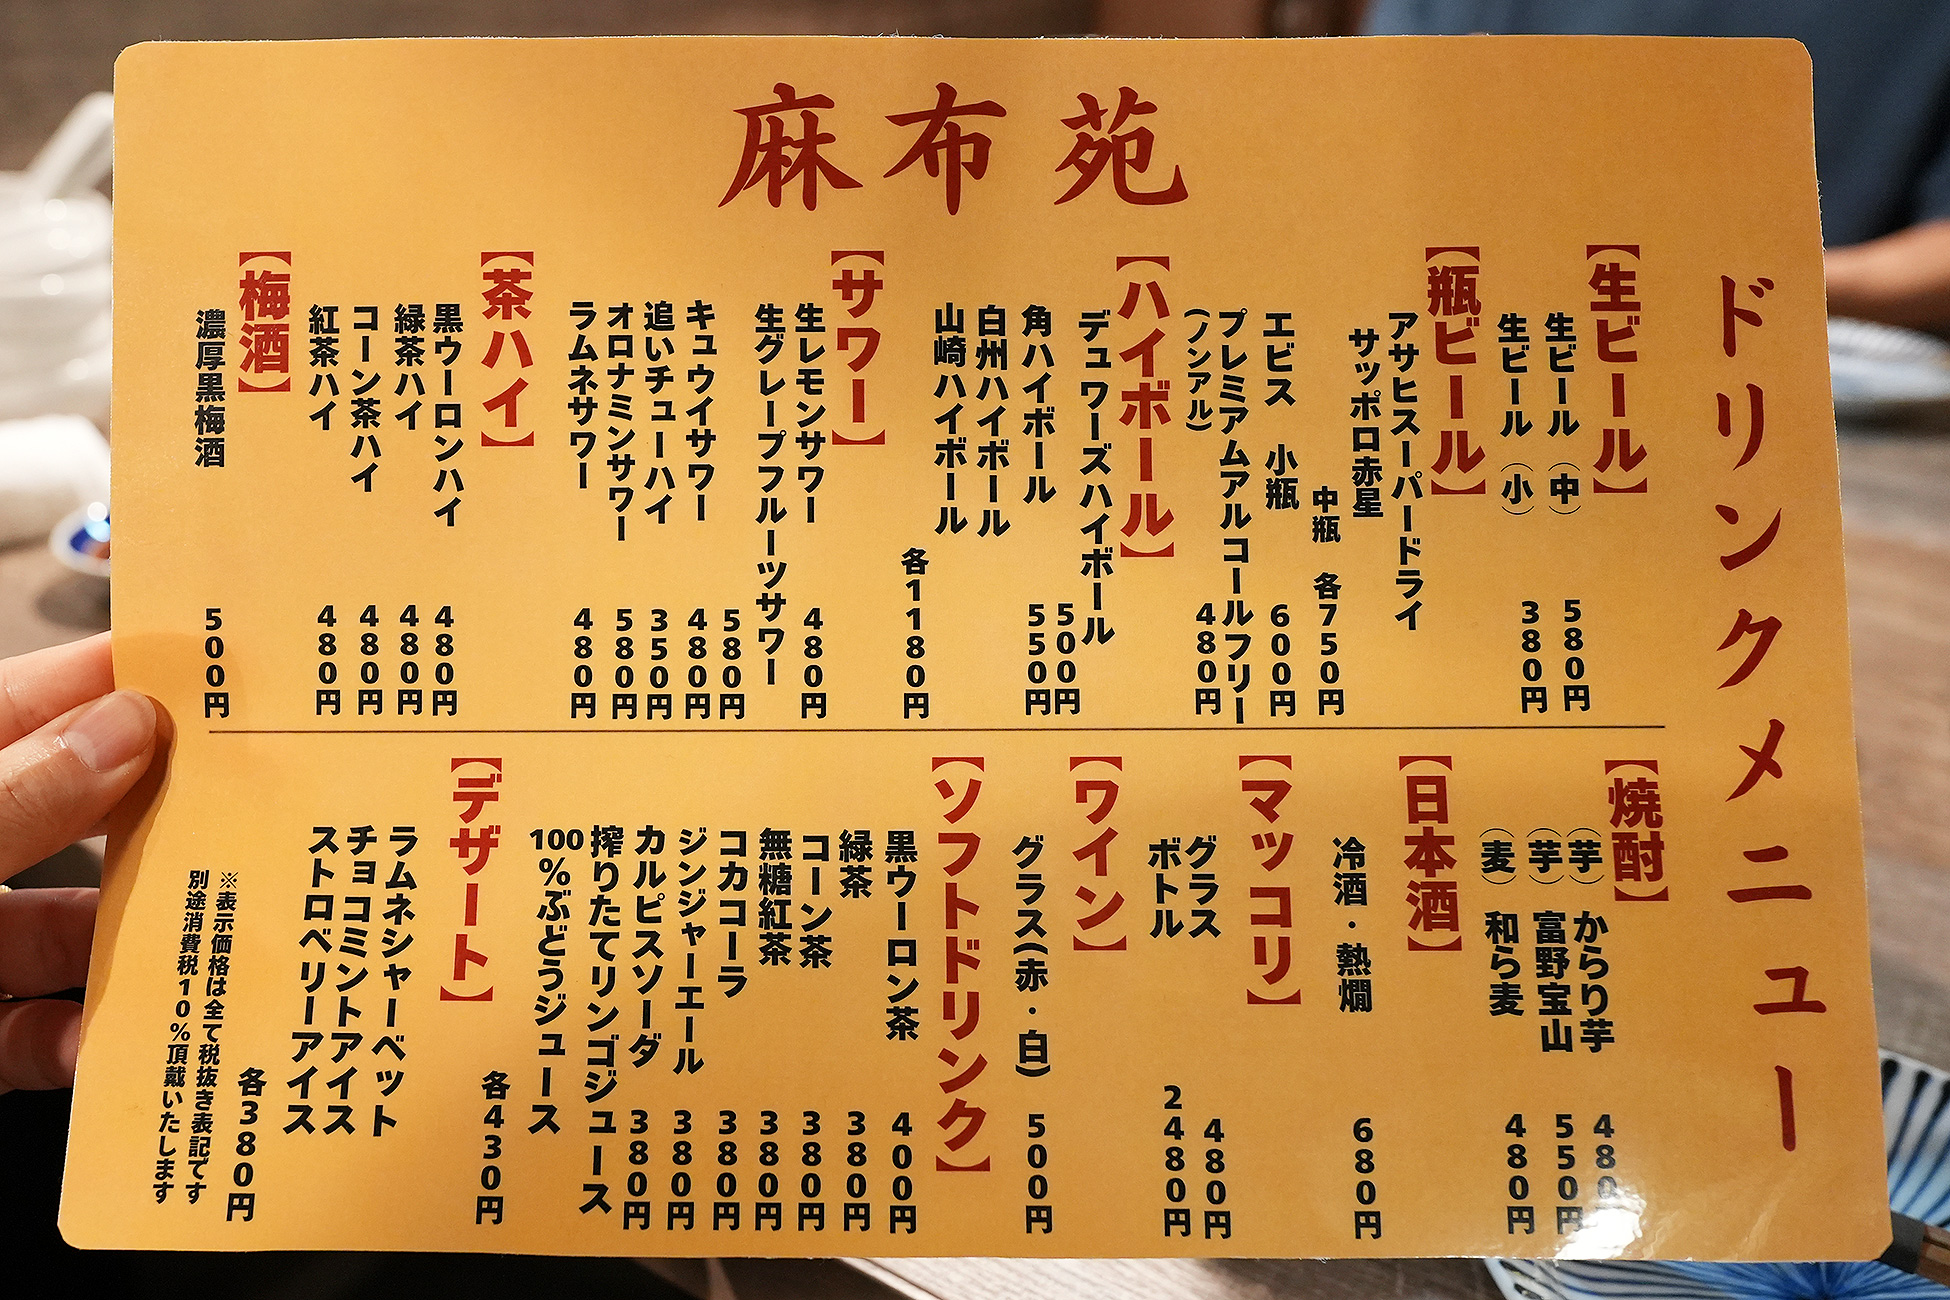 麻布苑
ドリンクメニュー
【生ビール】
生ビール（中） 580円
生ビール（小） 380円
【瓶ビール】
アサヒスーパードライ
サッポロ赤星
中瓶 各750円
エビス 小瓶 600円
プレミアムアルコールフリー
(ノンアル) 480円
【ハイボール】
デュワーズハイボール 500円
角ハイボール 550円
白州ハイボール
山崎ハイボール
各1180円
【サワー】
生レモンサワー 480円
生グレープフルーツサワー 580円
キュウイサワー 480円
追いチューハイ 350円
オロナミンサワー 580円
ラムネサワー 480円
【茶ハイ】
黒ウーロンハイ 480円
緑茶ハイ 480円
コーン茶ハイ 480円
紅茶ハイ 480円
【梅酒】
濃厚黒梅酒 500円
【焼酎】
（芋） からり芋 480円
（芋） 富野宝山 550円
（麦） 和ら麦 480円
【日本酒】
冷酒・熱燗 680円
【マッコリ】
グラス 480円
ボトル 2480円
【ワイン】
グラス(赤・白) 500円
【ソフトドリンク】
黒ウーロン茶 400円
緑茶 380円
コーン茶 380円
無糖紅茶 380円
コカコーラ 380円
ジンジャーエール 380円
カルピスソーダ 380円
搾りたてリンゴジュース
100%ぶどうジュース
各430円
【デザート】
ラムネシャーベット
チョコミントアイス
ストロベリーアイス
各380円
※表示価格は全て税抜き表記です
別途消費税10%頂戴いたします